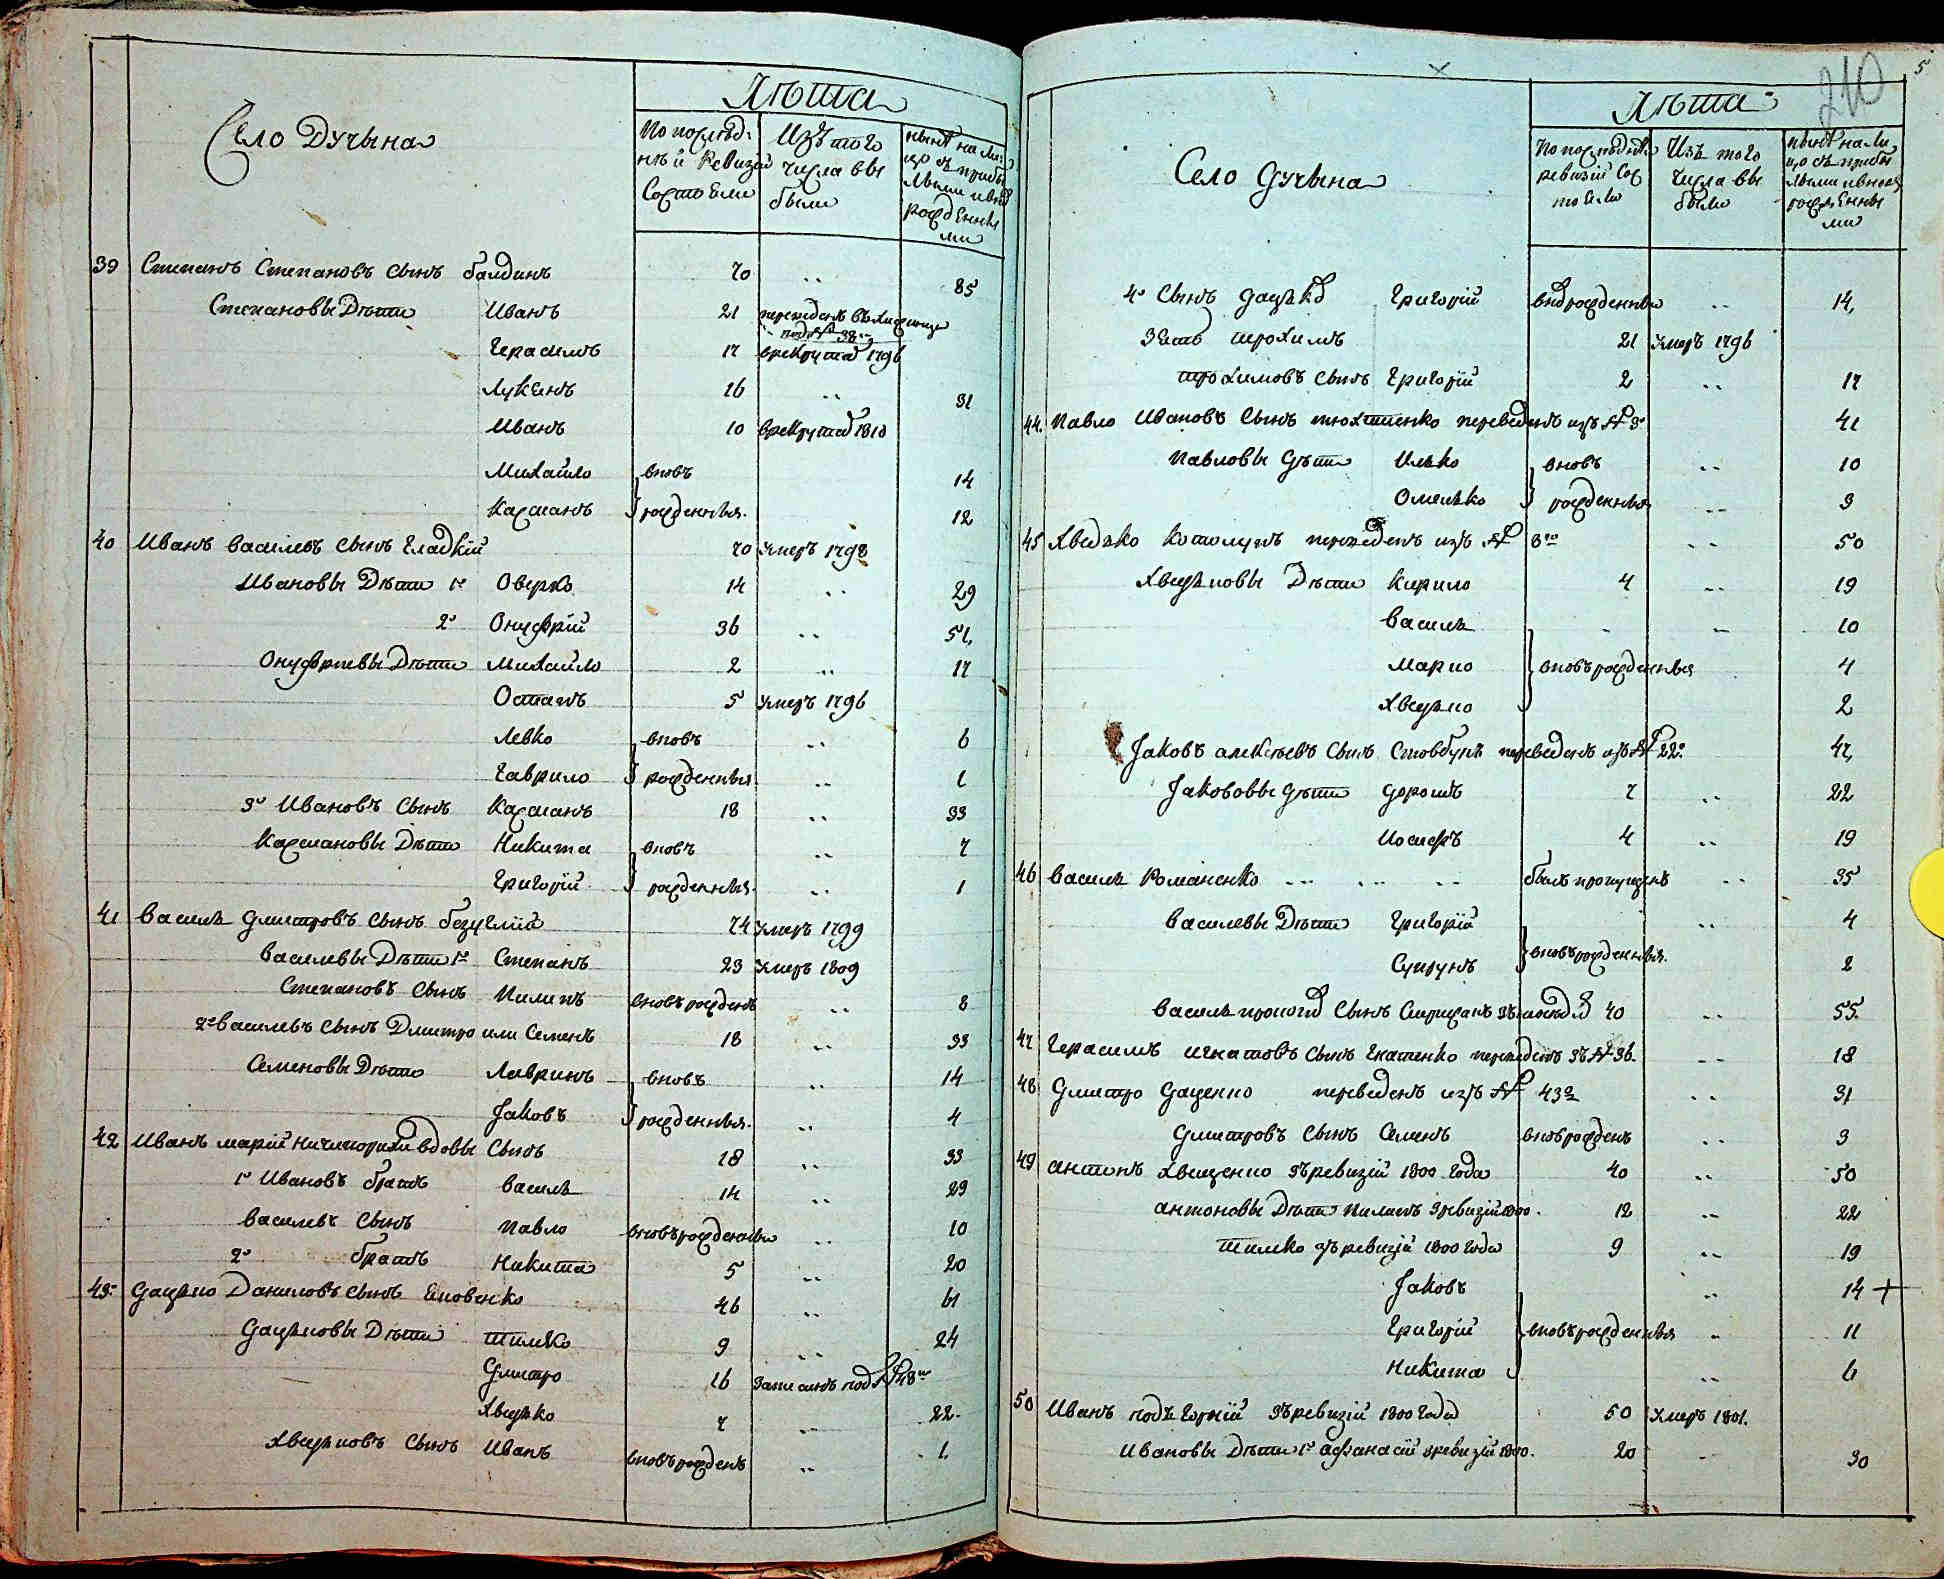 Село Дучына
Лѣта
По послѣд-
нѣй ревизіи
состояли
Изъ того
числа вы
были
нынѣ на ли
цо съ прибы
лыми и вно
рожденны
ми
39 Степанъ Степановъ сынъ балдинъ 70 .. 85
Степановы Дѣти Иванъ 21 переведенъ въ
подъ № 38
Герасимъ 17 в рекрута 1796
Лукянъ 16 .. 31
Иванъ 10 в рекрута 1810
Михайло вновь 14
Касианъ рожденныя. 12
40 Иванъ василевъ сынъ гладкій 70 умеръ 1798
Ивановы Дѣти 1й Оверко 14 .. 29
2й Онуфрій 36 .. 51
Онуфриевы Дѣти Михайло 2 .. 17
Остапъ 5 умеръ 1796
Левко вновь .. 6
Гаврило рожденныя .. 1
3й Ивановъ сынъ Касианъ 18 .. 33
Касиановы Дѣти Никита вновь .. 7
Григорій рожденныя. .. 1
41 Василь дмитровъ сынъ 74 умеръ 1799
Василевы Дѣти 1й Степанъ 23 умеръ 1809
Степановъ сынъ Пилипъ вновь рожденъ .. 8
2й василевъ сынъ Дмитро или Семенъ 18 .. 33
Семеновы Дѣти Лавринъ вновь .. 14
Яковъ рожденныя. .. 4
42 Иванъ марїи ничипорихи вдовы Сынъ 18 .. 33
1й Ивановъ братъ Василь 14 .. 29
Василевъ сынъ Павло вновь рожденны .. 10
2й братъ Никита 5 .. 20
43 Дацько Даниловъ сынъ 46 .. 61
Дацьковы Дѣти тимко 9 .. 24
Дмитро 16 записанъ под № 48м
Хведко 7 .. 22.
Хведьковъ сынъ Иванъ вновь рожденъ .. 1.
5
210
Село Дучына
Лѣта
По послѣднѣ
ревизіи сос
тояли
Изъ того
числа вы
были
нынѣ на ли
цо съ прибы
лыми и вновь
рожденны
ми
4й Сынъ дацька Григорій вно рожденны .. 14,
Зять трохимъ 21 умеръ 1796
трохимовъ сынъ Григорій 2 .. 17
44. Павло Ивановъ сынъ тюхтиенко переведенъ изъ № 3о 41
Павловы дѣти Илько вновь .. 10
Омелько рожденныя .. 3
45 Хведько Котолупъ переведенъ изъ № 8го .. 50
Хведьковы Дѣти Кирило 4 .. 19
Василь .. 10
Марко вновь рожденныя 4
Хведко 2
Яковъ алексѣевъ сынъ Стовбунъ переведенъ изъ № 22о 47,
Якововы дѣти дорошъ 7 .. 22
Иосифъ 4 .. 19
46 Василь Романенко .. .. .. былъ пропущенъ .. 35
Василевы Дѣти Григорій .. 4
Супрунъ вновь рожденныя. 2
Василь сынъ 40 .. 55.
47 Герасимъ игнатовъ сынъ гнатенко переведенъ зъ № 36. .. 18
48 Дмитро даценко переведенъ изъ № 43го .. 31
Дмитровъ сынъ Семенъ вновь рожденъ .. 3
49 Антонъ Хвещенко зъ ревизіи 1800 года 40 .. 50
Антоновы Дѣти пилипъ з ревизіи 1800. 12 .. 22
тимко зъ ревизіи 1800 года 9 .. 19
Яковъ .. 14 +
Григорій вновь рожденныя .. 11
Никита .. 6
50 Иванъ подъ горній зъ ревизіи 1800 года 50 умеръ 1801.
Ивановы Дѣти 1й афанасій з ревизіи 1800. 20 .. 30